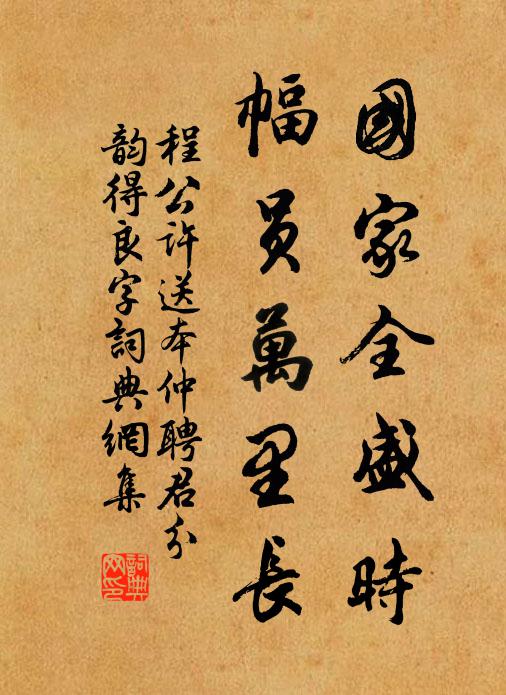 國家全盛時
幅員萬里長
程公許送本仲聘君分
韵得良字詞典網集
詞典网印